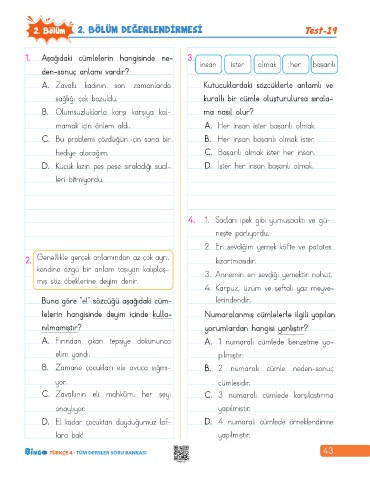 2. Bölüm
2. BÖLÜM DEĞERLENDİRMESİ
Test-19
1. Aşağıdaki cümlelerin hangisinde ne-
den-sonuç anlamı vardır?
A. Zavallı kadının son zamanlarda
sağlığı çok bozuldu.
B. Olumsuzluklarla karşı karşıya kal-
mamak için önlem aldı.
C. Bu problemi çözdüğün için sana bir
hediye alacağım.
D. Küçük kızın peş peşe sıraladığı sual-
leri bitmiyordu.
2. Genellikle gerçek anlamından az çok ayrı,
kendine özgü bir anlam taşıyan kalıplaş-
mış söz öbeklerine deyim denir.
Buna göre "el" sözcüğü aşağıdaki cüm-
lelerin hangisinde deyim içinde kulla-
nılmamıştır?
A. Fırından çıkan tepsiye dokununca
elim yandı.
B. Zamane çocukları ele avuca sığmı-
yor.
C. Zavallının eli mahkûm, her şeyi
onaylıyor.
D. El kadar çocuktan duyduğumuz laf-
lara bak!
3.
insan ister olmak her başarılı
Kutucuklardaki sözcüklerle anlamlı ve
kurallı bir cümle oluşturulursa sırala-
ma nasıl olur?
A. Her insan ister başarılı olmak.
B. Her insan başarılı olmak ister.
C. Başarılı olmak ister her insan.
D. İster her insan başarılı olmak.
4. 1. Saçları ipek gibi yumuşacıktı ve gü-
neşte parlıyordu.
2. En sevdiğim yemek köfte ve patates
kızartmasıdır.
3. Annemin en sevdiği yemektir nohut.
4. Karpuz, üzüm ve şeftali yaz meyve-
lerindendir.
Numaralanmış cümlelerle ilgili yapılan
yorumlardan hangisi yanlıştır?
A. 1 numaralı cümlede benzetme ya-
pılmıştır.
B. 2 numaralı cümle neden-sonuç
cümlesidir.
C. 3 numaralı cümlede karşılaştırma
yapılmıştır.
D. 4 numaralı cümlede örneklendirme
yapılmıştır.
BinGO TÜRKÇE 4 - TÜM DERSLER SORU BANKASI
43